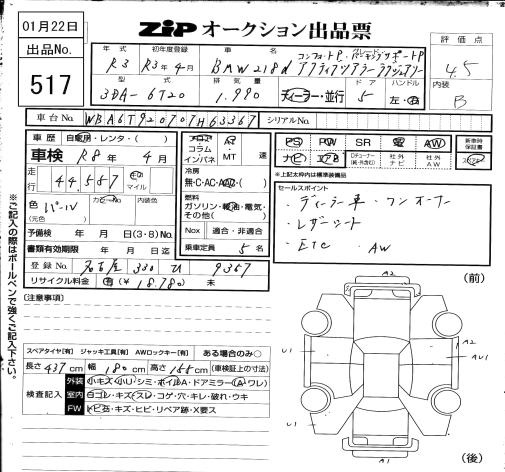 01月22日
ZIP オークション出品票
出品No.
517
評価点
4.5
内装
B
年式 初年度登録 車名 グレード
R3 R3年4月 BMW218d コンフォートP、パーキングサポートP
アクティブツアラー ラグジュアリー
型式 排気量 ドア ハンドル
3DA-6T20 1.990 ディーラー・並行 5 左・右
車台No. WBA6T920707H63367 シリアルNo.
車歴 自家用・レンタ・( )
車検 R8年4月
走行 44.587 km マイル
色 パール カラーNo.
(元色)
予備検 年 月 日(3・8)No.
書類有効期限 年 月 日迄
登録No. 名古屋 330 ひ 9367
リサイクル料金 有(¥18.780) 未
フロア AT
コラム
インパネ MT 速
冷房
無・C・AC・AAC・( )
燃料
ガソリン・軽油・電気・
その他( )
Nox 適合・非適合
乗車定員 5名
PS PW SR 革 AW
ナビ エアB Dチューナー(純・外含む) 社外ナビ 社外AW
新車時保証書
スペアキー
※上記太枠内は標準装備品
セールスポイント
・ディーラー車・ワンオーナー
・レザーシート
・ETC ・AW
※ご記入の際はボールペンで強くご記入下さい。
[注意事項]
スペアタイヤ[有] ジャッキ工具[有] AWロックキー[有] ある場合のみ○
長さ437cm 幅180cm 高さ155cm (車検証上の寸法)
検査記入
外装 小キズ・小U・シミ・ホイルA・ドアミラー(A・ワレ)
室内 ヨゴレ・キズ・スレ・コゲ・穴・キレ・破れ・ウキ
FW トビ石・キズ・ヒビ・リペア跡・X要ス
(前)
A2
U1 A2
AU1
U1
A2
(後)